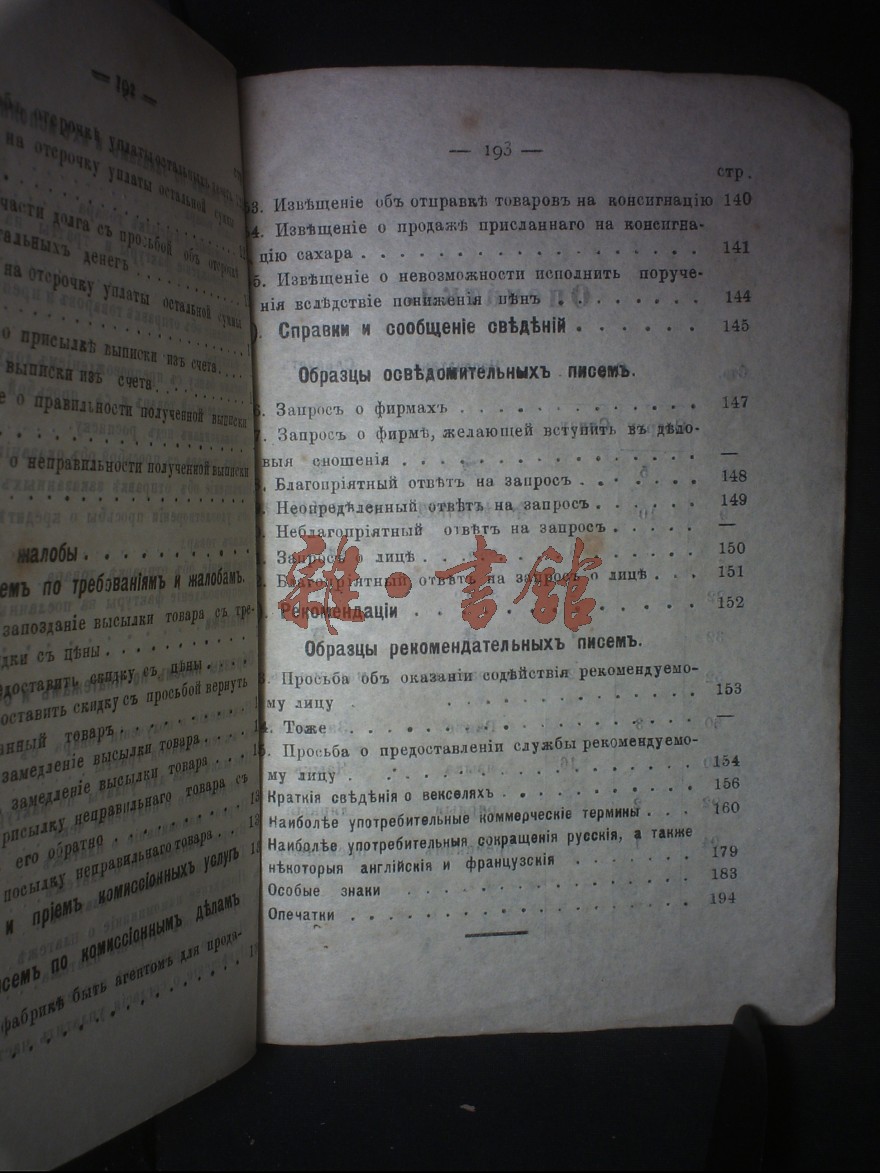 — 192 —
на отсрочку уплаты остальной суммы
части долга съ просьбой объ отсрочкѣ
тальныхъ денегъ
на отсрочку уплаты остальной суммы
о присылкѣ выписки изъ счета
выписки изъ счета
е о правильности полученной выписки
о неправильности полученной выписки
жалобы
емъ по требованіямъ и жалобамъ.
запозданіе высылки товара съ тре-
дки съ цѣны
едоставить скидку съ цѣны
оставить скидку съ просьбой вернуть
анный товаръ
замедленіе высылки товара
замедленіе высылки товара
рисылку неправильнаго товара съ
его обратно
посылку неправильнаго товара
и пріемъ комиссіонныхъ услугъ
семъ по комиссіоннымъ дѣламъ
фабрикѣ быть агентомъ для прода-
— 193 —
стр.
3. Извѣщеніе объ отправкѣ товаровъ на консигнацію 140
4. Извѣщеніе о продажѣ присланнаго на консигна-
цію сахара . . . . . . . . . . . . . . . . . 141
5. Извѣщеніе о невозможности исполнить поруче-
нія вслѣдствіе пониженія цѣнъ . . . . . . . . 144
Справки и сообщеніе свѣдѣній . . . . . . 145
Образцы освѣдомительныхъ писемъ.
6. Запросъ о фирмахъ . . . . . . . . . . . . 147
7. Запросъ о фирмѣ, желающей вступить въ дѣло-
выя сношенія . . . . . . . . . . . . . . . —
Благопріятный отвѣтъ на запросъ . . . . . . . 148
Неопредѣленный отвѣтъ на запросъ . . . . . . 149
Неблагопріятный отвѣтъ на запросъ . . . . . —
Запросъ о лицѣ . . . . . . . . . . . . 150
Благопріятный отвѣтъ на запросъ о лицѣ . . . 151
Рекомендаціи . . . . . . . . . . . . . 152
Образцы рекомендательныхъ писемъ.
3. Просьба объ оказаніи содѣйствія рекомендуемо-
му лицу . . . . . . . . . . . 153
4. Тоже . . . . . . . . . . . . . . . . —
5. Просьба о предоставленіи службы рекомендуемо-
му лицу . . . . . . . . . . . . . . . 154
Краткія свѣдѣнія о векселяхъ . . . . . . . . . 156
Наиболѣе употребительные коммерческіе термины . . . 160
Наиболѣе употребительныя сокращенія русскія, а также
нѣкоторыя англійскія и французскія . . . . . . . 179
Особые знаки . . . . . . . . . . . . . . 183
Опечатки . . . . . . . . . . . . . . . . 194
雜·書館